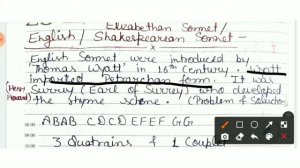 Elizabethan Sonnet/
English / Shakespearean Sonnet -
x
English Sonnet were introduced by
'Thomas Wyatt' in 16th century. Wyatt
imported Petrarchan form. It was
(Henry Howard)
Surrey (Earl of Surrey) who developed
the rhyme scheme. (Problem & Solution)
18.00
ABAB CDCD EFEF GG
19.00
3 Quatrains & 1 Couplet